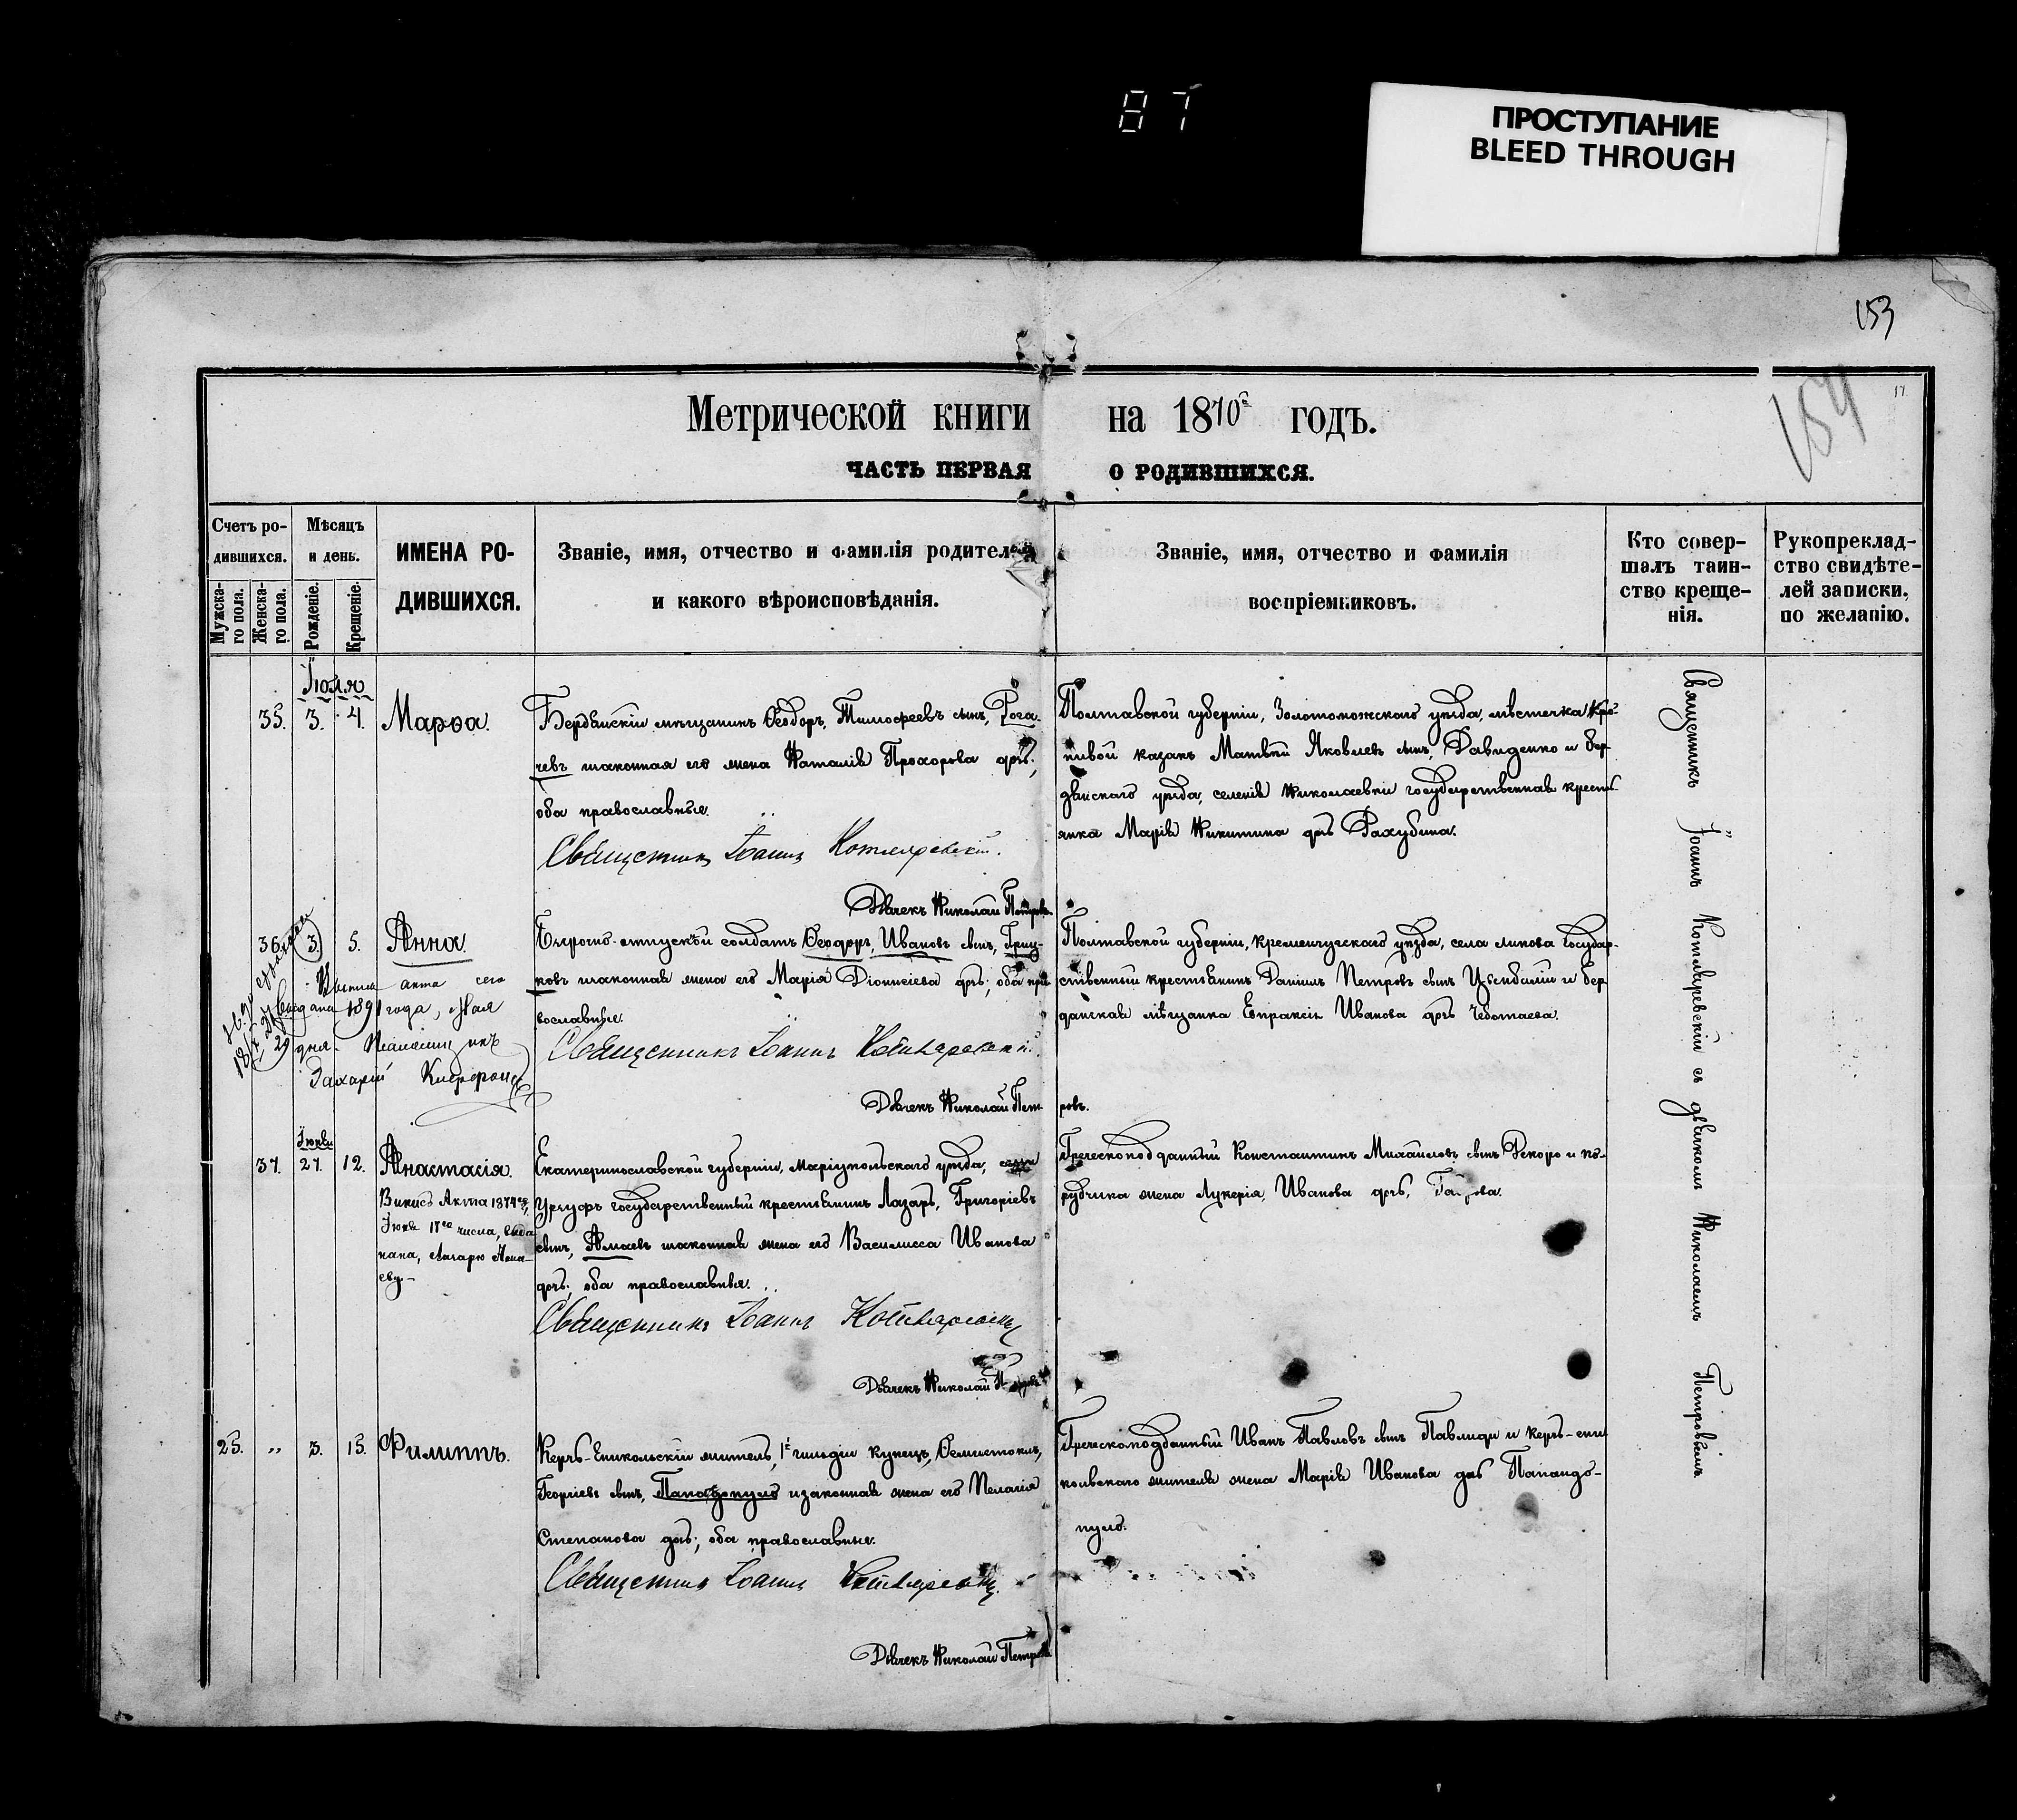 87
ПРОСТУПАНИЕ
BLEED THROUGH
153
154
17.
Метрической книги на 1870й годъ.
ЧАСТЬ ПЕРВАЯ О РОДИВШИХСЯ.
Счетъ ро-
дившихся.
Мужска-
го пола.
Женска-
го пола.
Мѣсяцъ
и день.
Рожденіе.
Крещеніе.
ИМЕНА РО-
ДИВШИХСЯ.
Званіе, имя, отчество и фамилія родителей
и какого вѣроисповѣданія.
Званіе, имя, отчество и фамилія
воспріемниковъ.
Кто совер-
шалъ таин-
ство креще-
нія.
Рукоприклад-
ство свидѣте-
лей записки,
по желанію.
Іюля
35. 3. 4. Марѳа.
Бердянскій мѣщанинъ Ѳеодоръ, Тимофеевъ сынъ, Рога-
чевъ изаконная его жена Наталія Прохорова дочь;
оба православные.
Священникъ Іоаннъ Котляревскій.
Дьячекъ Николай Петровъ
Полтавской губерніи, Золотоножскаго уѣзда, мѣстечка Кро-
пивой казакъ Матвѣй Яковлевъ сынъ, Давиденко и бер-
дянскаго уѣзда, селенія Николаевки государственная кресть-
янка Марія Никитина дочь Рахубина.
36. 3. 5. Анна.
Выпись акта сего
выдана 1891 года, Мая
29 дня. Псаломщикъ
Захарій
Безсрочно-отпускной солдатъ Ѳеодоръ, Ивановъ сынъ, Гриц-
ковъ изаконная жена его Марія Діонисіева дочь; оба пра-
вославные.
Священникъ Іоаннъ Котляревскій.
Дьячекъ Николай Пет-
ровъ.
Полтавской губерніи, Кременчугскаго уѣзда, села государ-
ственный крестьянинъ Даніилъ Петровъ сынъ и бер-
дянская мѣщанка Евпраксія Иванова дочь Чеботаева.
Іюня
37. 27. 12. Анастасія.
Выпись Акта 1874го,
Іюня 17го числа, выда-
нана, Лазарю Апма-
еву.-
Екатеринославской губерніи, Маріупольскаго уѣзда, села
Урзуфъ государственный крестьянинъ Лазарь, Григоріевъ
сынъ, Апмаевъ изаконная жена его Василисса Иванова
дочь; оба православные.
Священникъ Іоаннъ Котляревскій
Дьячекъ Николай Петровъ
Греческоподданный Константинъ Михайловъ сынъ Рекоро и по-
ручика жена Лукерія, Иванова дочь,
25. " 3. 15. Филиппъ.
Керчь-Еникольскій житель, 1й гильдіи купецъ, Ѳемистоклъ,
Георгіевъ сынъ, Пападопуло изаконная жена его Пелагія
Степанова дочь; оба православные.
Священникъ Іоаннъ Котляревскій.
Дьячекъ Николай Петровъ
Греческоподданный Иванъ Павловъ сынъ Павлиди и керчь-ени-
кольскаго жителя жена Марія Иванова дочь Папандо-
пуло.
Священникъ Іоаннъ Котляревскій съ дьячкомъ Николаемъ Петровымъ